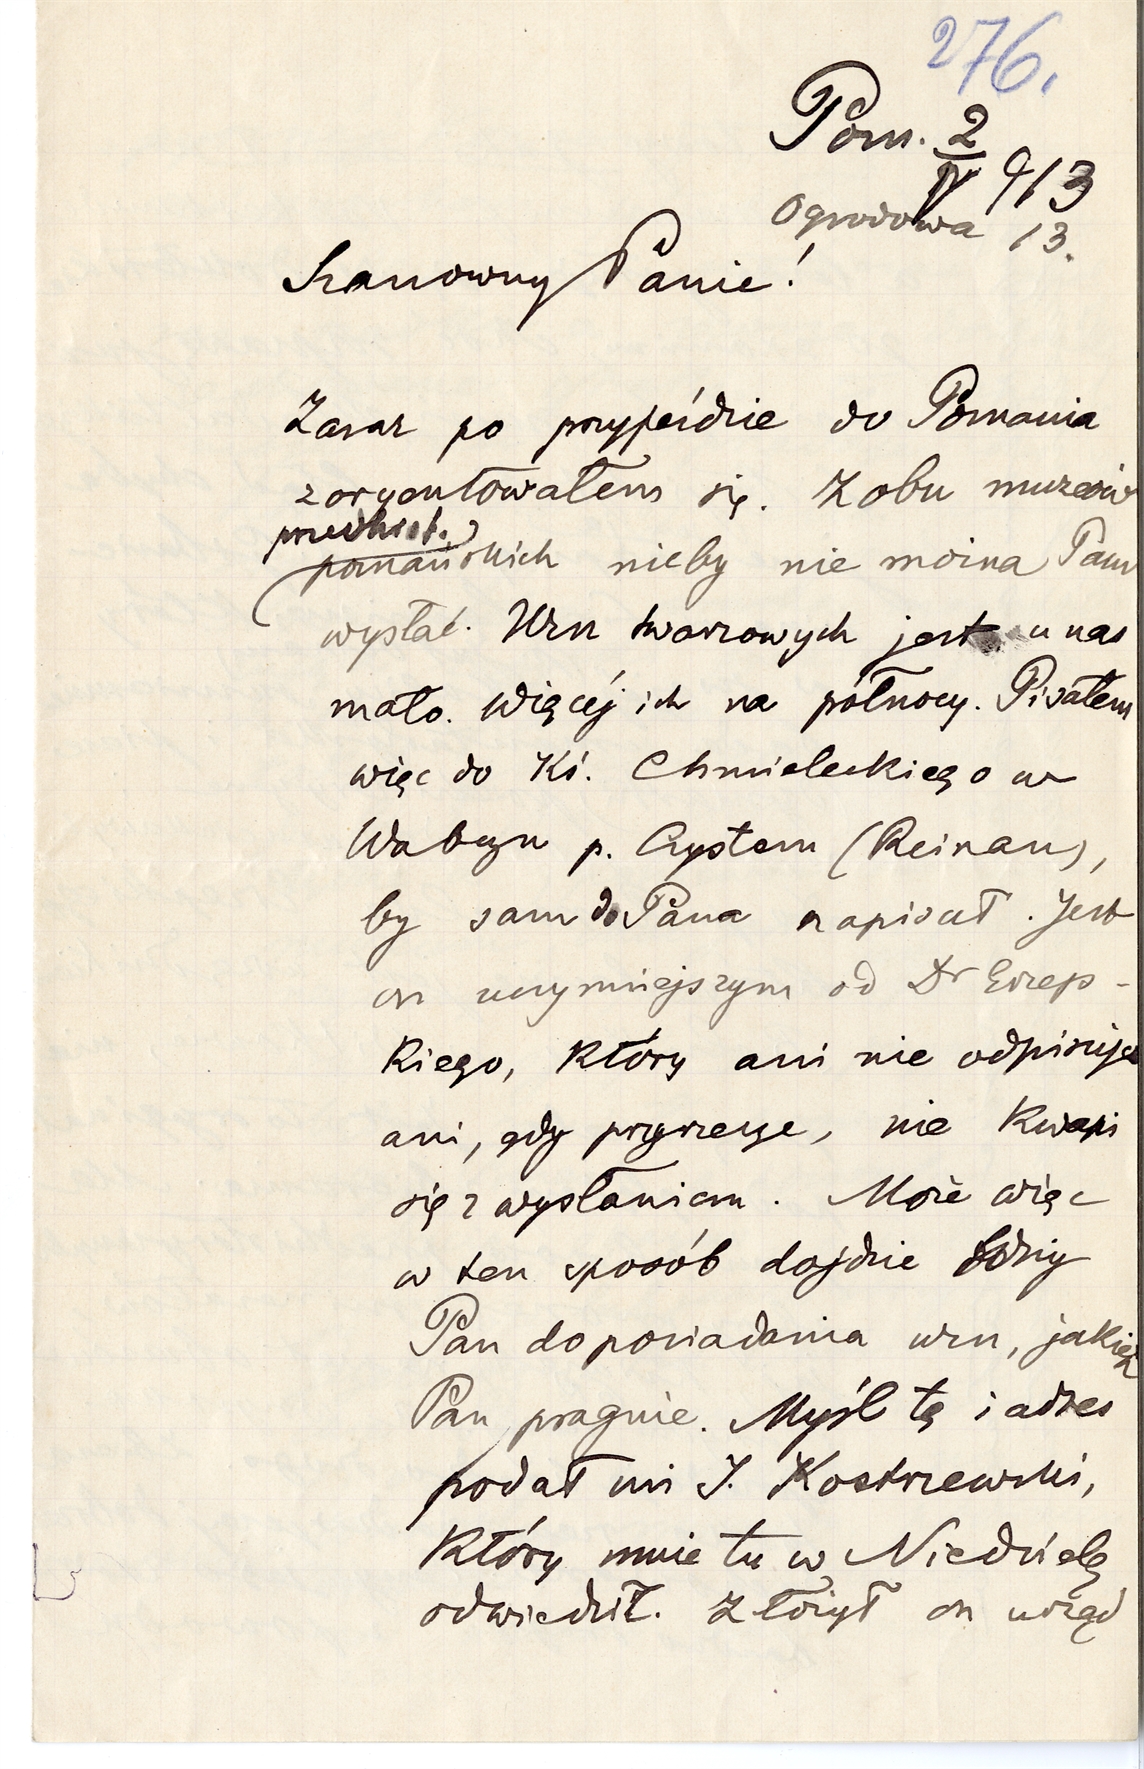 276.
Pozn. 2/IV 913
Ogrodowa 13.
Szanowny Panie!
Zaraz po przyjeździe do Poznania
zoryentowałem się. Z obu muzeów
przedhist.
poznańskich nieby nie można Panu
wysłać. Urn twarzowych jest u nas
mało. Więcéj ich na północy. Pisałem
więc do Ks. Chmieleckiego w
Wabczu p. Czystem (Reinau),
by sam do Pana napisał. Jest
on uczynniejszym od Dr Erzep-
kiego, który ani nie odpisuje
ani, gdy przyrzecze, nie kwapi
się z wysłaniem. Może więc
w ten sposób dojdzie
Pan do posiadania urn, jakich
Pan pragnie. Myśl tę i adres
podał mi J. Kostrzewski,
który mnie tu w Niedzielę
odwiedził. Złożył on urząd